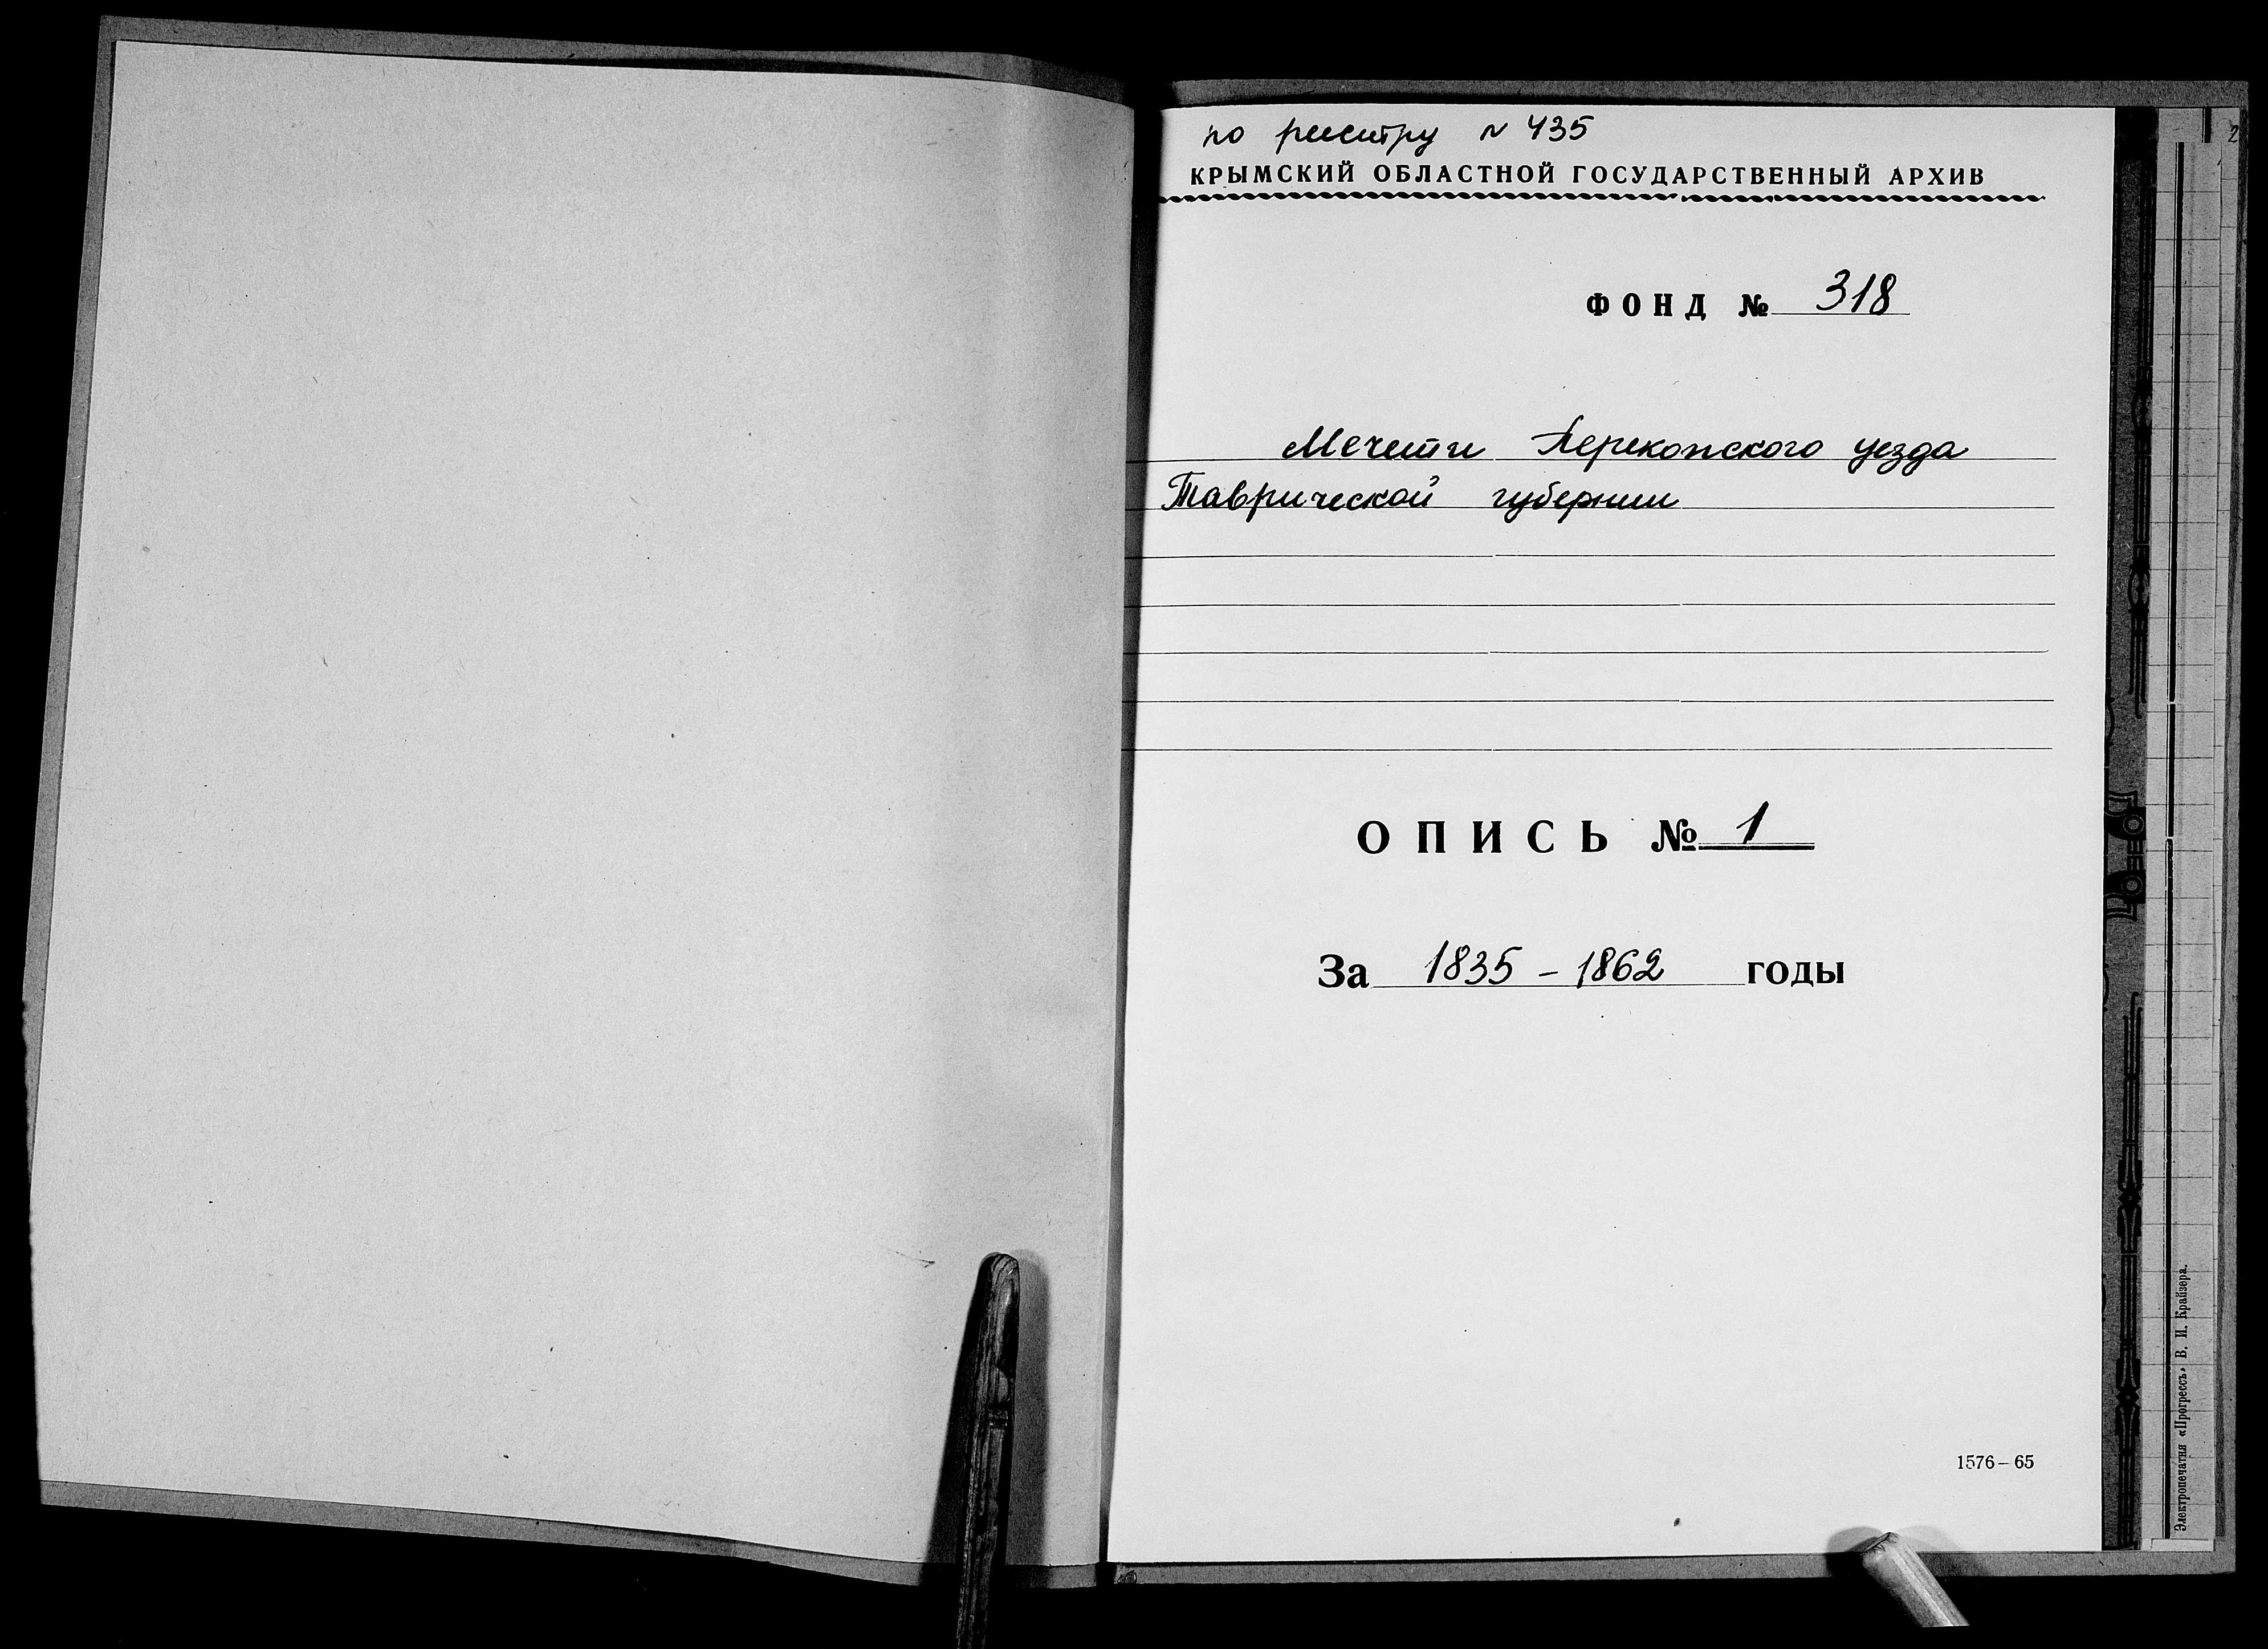 по реестру № 435
КРЫМСКИЙ ОБЛАСТНОЙ ГОСУДАРСТВЕННЫЙ АРХИВ
ФОНД № 318
Мечети Перекопского уезда
Таврической губернии
ОПИСЬ № 1
За 1835 – 1862 годы
1576 – 65
Электропечатня «Прогрессъ» В. И. Крайзера.
2